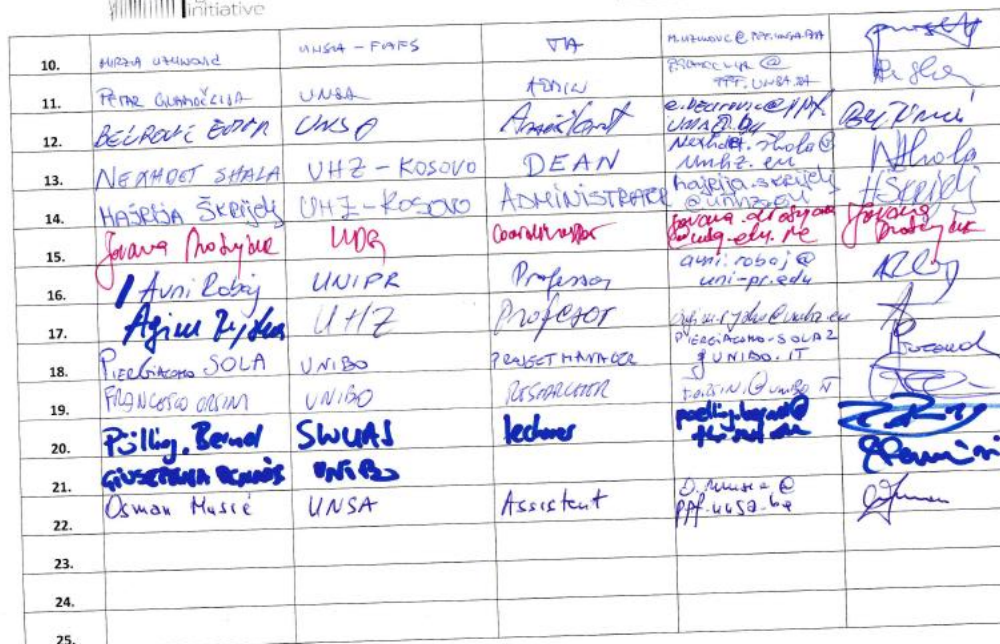 initiative
10. MIRZA UZUNOVIĆ UNSA - FAFS TA M.UZUNOVIC@PPF.UNSA.BA
11. PETAR GLAMOČLIJA UNSA ADMIN P.GLAMOCLIJA@
PPF.UNSA.BA
12. BEĆIROVIĆ EDINA UNSA Assistant
13. NEXHDET SHALA UHZ - KOSOVO DEAN Nexhdet.shala@
unhz.eu NShala
14. HAJRIJA ŠKRIJELJ UHZ - KOSOVO ADMINISTRATOR hajrija.skrijelj
@unhz.eu HŠkrijelj
15. Jovana UDG Coordinator
@udg.edu.me Jovana
16. Avni Robaj UNIPR Professor avni.robaj@
uni-pr.edu
17. Agim UHZ Profesor
18. PIERGIACOMO SOLA UNIBO PROJECT MANAGER PIERGIACOMO.SOLA2
@UNIBO.IT
19. FRANCESCO ORSINI UNIBO RESEARCHER F.ORSINI@UNIBO.IT
20. Pölling, Bernd SWUAS lecturer
21. GIUSEPPINA UNIBO
22. Osman Musić UNSA Assistent
ppf.unsa.ba
23.
24.
25.